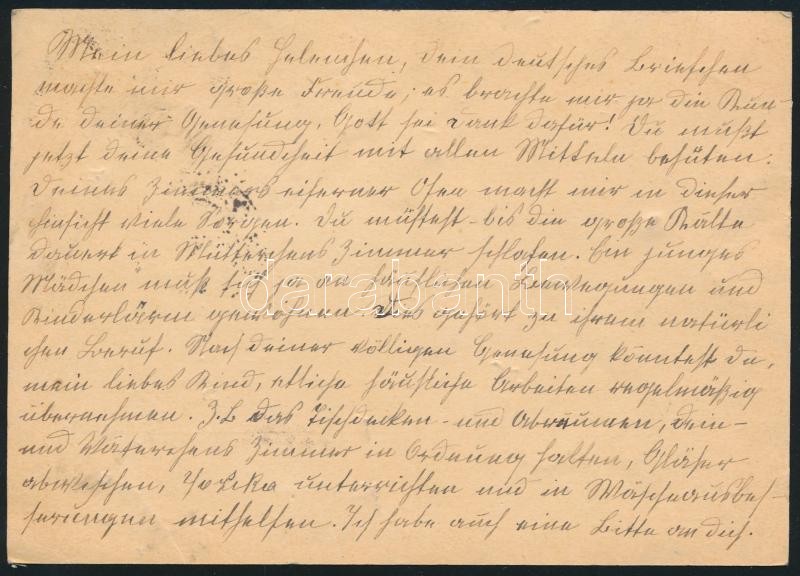 Mein liebes Helenchen, dein deutsches Briefchen
machte mir große Freude; es brachte mir ja die Kun-
de deiner Genesung, Gott sei Dank dafür! Du mußt
jetzt deine Gesundheit mit allen Mitteln behüten.
Deines Zimmers eiserner Ofen macht mir in dieser
Hinsicht viele Sorgen. Du müßtest - bis die große Kälte
dauert in Mütterchens Zimmer schlafen. Ein junges
Mädchen muß sich ja an häuslichen Bewegungen und
Kinderlärm gewöhnen. Das gehört zu ihrem natürli
chen Beruf. Nach deiner völligen Genesung könntest du,
mein liebes Kind, etliche häusliche Arbeiten regelmäßig
übernehmen. Z.B. das Tischdecken - und Abräumen, dein -
undVäterchens Zimmer in Ordnung halten, Gläser
abwischen, unterrichten und in Wäscheausbes-
serungen mithelfen. Ich habe auch eine Bitte an dich.
darabanth